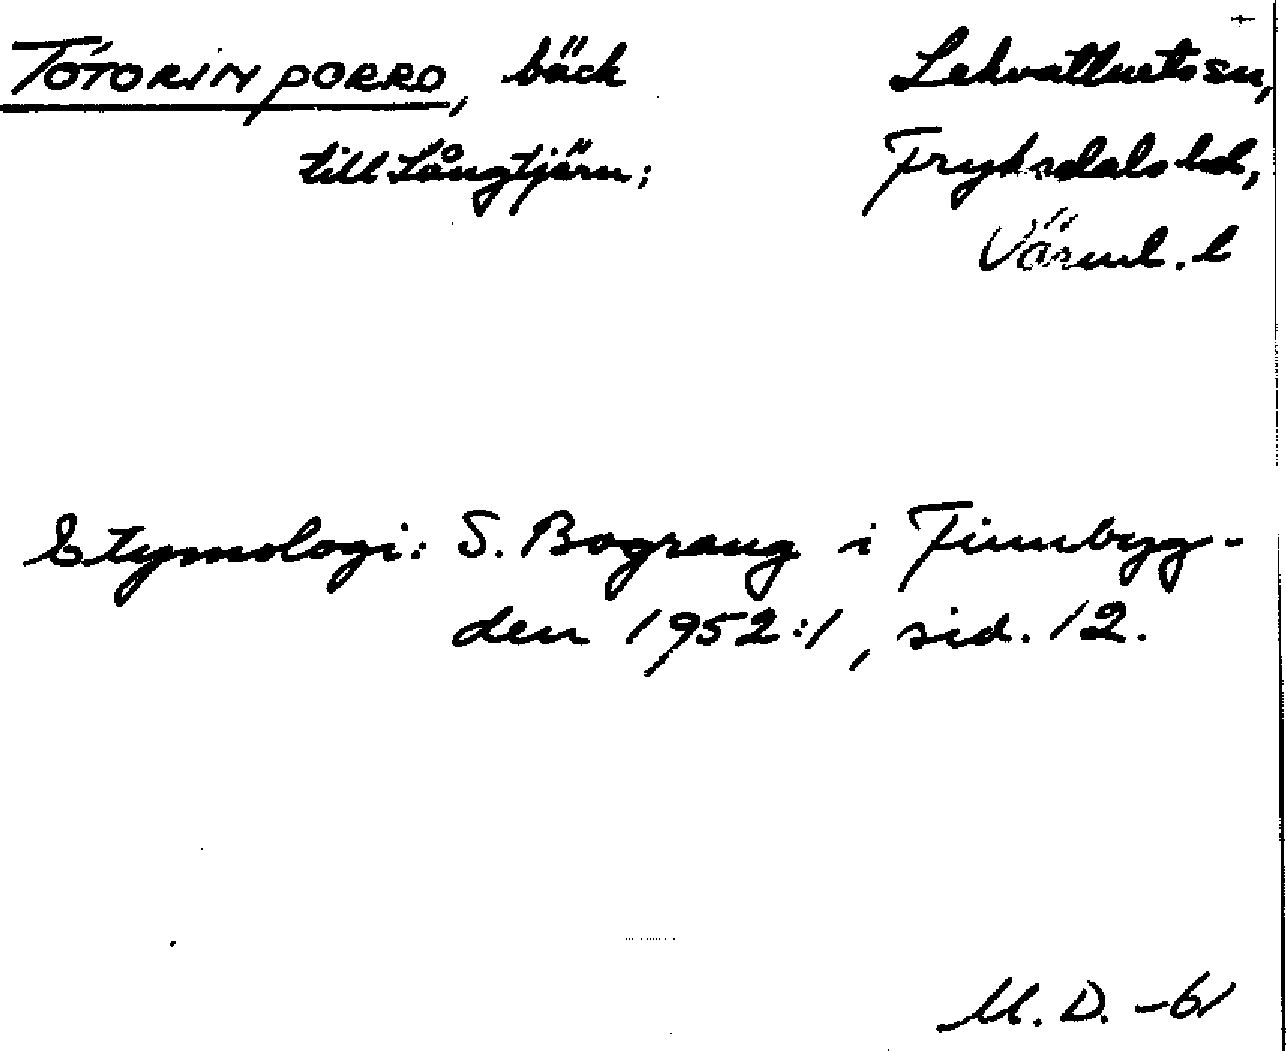 TÓTORIN PORRO, bäck Lekvattnets sn,
till Långtjärn; Fryksdals hd,
Värml. l
Etymologi: S. Bograng i Finnbyg-
den 1952:1, sid. 12.
M. D. -61